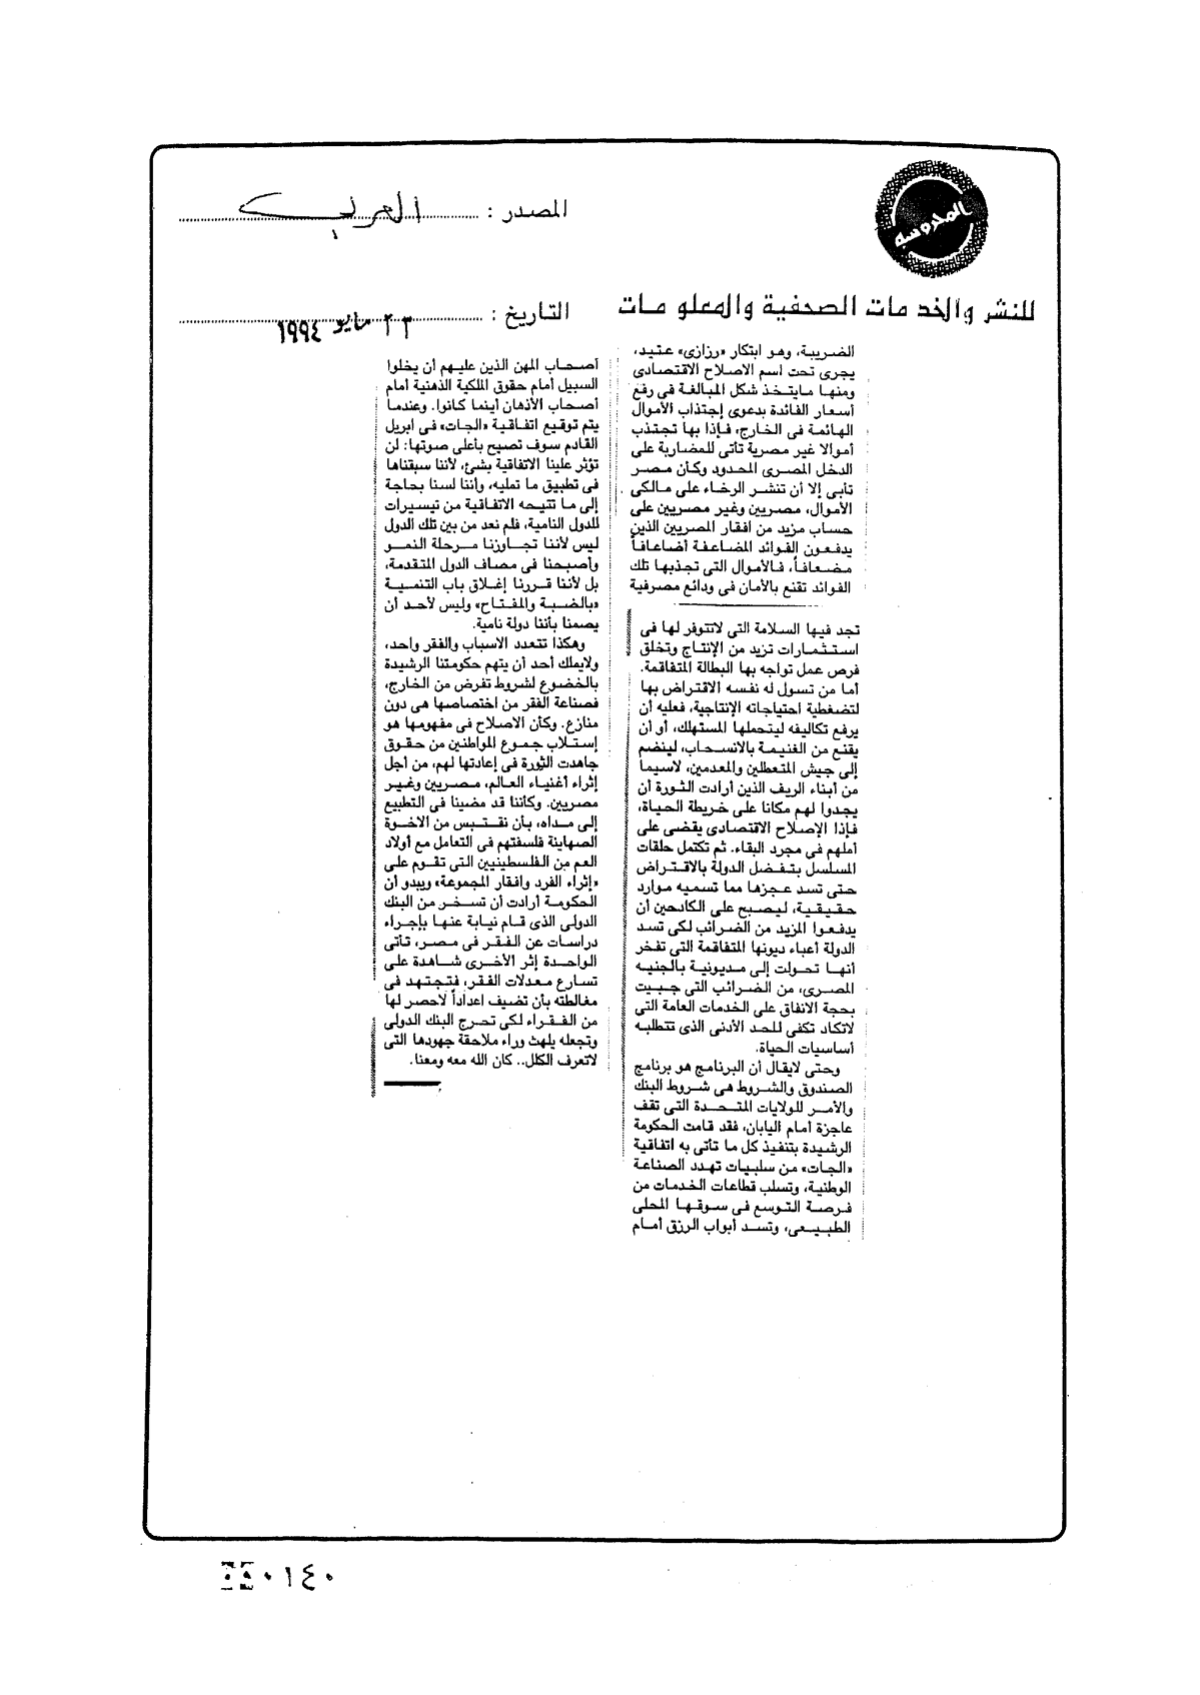 المحروسة
المصدر : العربي
للنشر والخدمات الصحفية والمعلومات
التاريخ : ٢٣ مايو ١٩٩٤
الضريبة، وهو ابتكار «رزازى» عتيد،
يجرى تحت اسم الاصلاح الاقتصادى
ومنها مايتخذ شكل المبالغة فى رفع
أسعار الفائدة بدعوى إجتذاب الأموال
الهائمة فى الخارج، فإذا بها تجتذب
أموالا غير مصرية تأتى للمضاربة على
الدخل المصرى المحدود وكأن مصر
تأبى إلا أن تنشر الرخاء على مالكى
الأموال، مصريين وغير مصريين على
حساب مزيد من افقار المصريين الذين
يدفعون الفوائد المضاعفة أضاعافاً
مضعافاً، فالأموال التى تجذبها تلك
الفوائد تقنع بالأمان فى ودائع مصرفية
تجد فيها السلامة التى لاتتوفر لها فى
استثمارات تزيد من الإنتاج وتخلق
فرص عمل تواجه بها البطالة المتفاقمة.
أما من تسول له نفسه الاقتراض بها
لتضغطية احتياجاته الإنتاجية، فعليه أن
يرفع تكاليفه ليتحملها المستهلك، أو أن
يقنع من الغنيمة بالانسحاب، لينضم
إلى جيش المتعطلين والمعدمين، لاسيما
من أبناء الريف الذين أرادت الثورة أن
يجدوا لهم مكانا على خريطة الحياة،
فإذا الإصلاح الاقتصادى يقضى على
أملهم فى مجرد البقاء. ثم تكتمل حلقات
المسلسل بتفضل الدولة بالاقتراض
حتى تسد عجزها مما تسميه موارد
حقيقية، ليصبح على الكادحين أن
يدفعوا المزيد من الضرائب لكى تسد
الدولة أعباء ديونها المتفاقمة التى تفخر
أنها تحولت إلى مديونية بالجنيه
المصرى، من الضرائب التى جبيت
بحجة الانفاق على الخدمات العامة التى
لاتكاد تكفى للحد الأدنى الذى تتطلبه
أساسيات الحياة.
وحتى لايقال أن البرنامج هو برنامج
الصندوق والشروط هى شروط البنك
والأمر للولايات المتحدة التى تقف
عاجزة أمام اليابان، فقد قامت الحكومة
الرشيدة بتنفيذ كل ما تأتى به اتفاقية
«الجات» من سلبيات تهدد الصناعة
الوطنية، وتسلب قطاعات الخدمات من
فرصة التوسع فى سوقها المحلى
الطبيعى، وتسد أبواب الرزق أمام
أصحاب المهن الذين عليهم أن يخلوا
السبيل أمام حقوق الملكية الذهنية أمام
أصحاب الأذهان أينما كانوا. وعندما
يتم توقيع اتفاقية «الجات» فى ابريل
القادم سوف تصيح بأعلى صوتها: لن
تؤثر علينا الاتفاقية بشئ، لأننا سبقناها
فى تطبيق ما تمليه، وأننا لسنا بحاجة
إلى ما تتيحه الاتفاقية من تيسيرات
للدول النامية، فلم نعد من بين تلك الدول
ليس لأننا تجاوزنا مرحلة النمو
وأصبحنا فى مصاف الدول المتقدمة،
بل لأننا قررنا إغلاق باب التنمية
«بالضبة والمفتاح» وليس لأحد أن
يصمنا بأننا دولة نامية.
وهكذا تتعدد الاسباب والفقر واحد،
ولايملك أحد أن يتهم حكومتنا الرشيدة
بالخضوع لشروط تفرض من الخارج،
فصناعة الفقر من اختصاصها هى دون
منازع. وكأن الاصلاح فى مفهومها هو
إستلاب جموع المواطنين من حقوق
جاهدت الثورة فى إعادتها لهم، من أجل
إثراء أغنياء العالم، مصريين وغير
مصريين. وكأننا قد مضينا فى التطبيع
إلى مداه، بأن نقتبس من الاخوة
الصهاينة فلسفتهم فى التعامل مع أولاد
العم من الفلسطينيين التى تقوم على
«إثراء الفرد وافقار المجموعة» ويبدو أن
الحكومة أرادت أن تسخر من البنك
الدولى الذى قام نيابة عنها بإجراء
دراسات عن الفقر فى مصر، تأتى
الواحدة إثر الأخرى شاهدة على
تسارع معدلات الفقر، فتجتهد فى
مغالطته بأن تضيف اعداداً لاحصر لها
من الفقراء لكى تحرج البنك الدولى
وتجعله يلهث وراء ملاحقة جهودها التى
لاتعرف الكلل.. كان الله معه ومعنا.
٠١٤٠